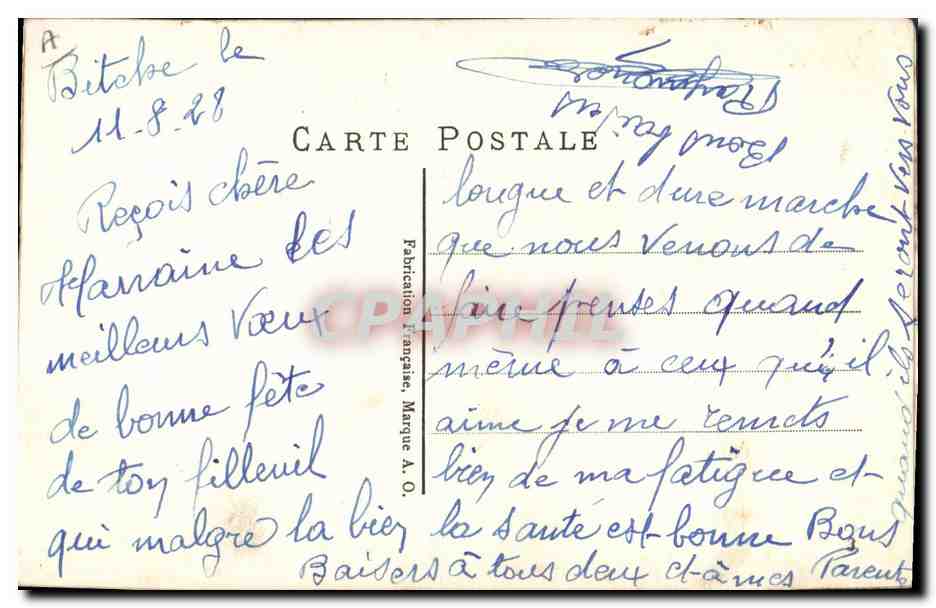 A
Bitche le
11-8-28
CARTE POSTALE
Reçois chère
Marraine les
meilleurs Vœux
de bonne fête
de ton filleuil
qui malgré la bien
longue et dure marche
que nous venons de
faire penses quand
même à ceux qu'il
aime je me remets
bien de ma fatigue et
la santé est bonne Bons
Baisers à tous deux et à mes Parents
quand ils seront vers vous
Bons baisers
Raymond
Fabrication Française, Marque A. O.
CPAPHIL